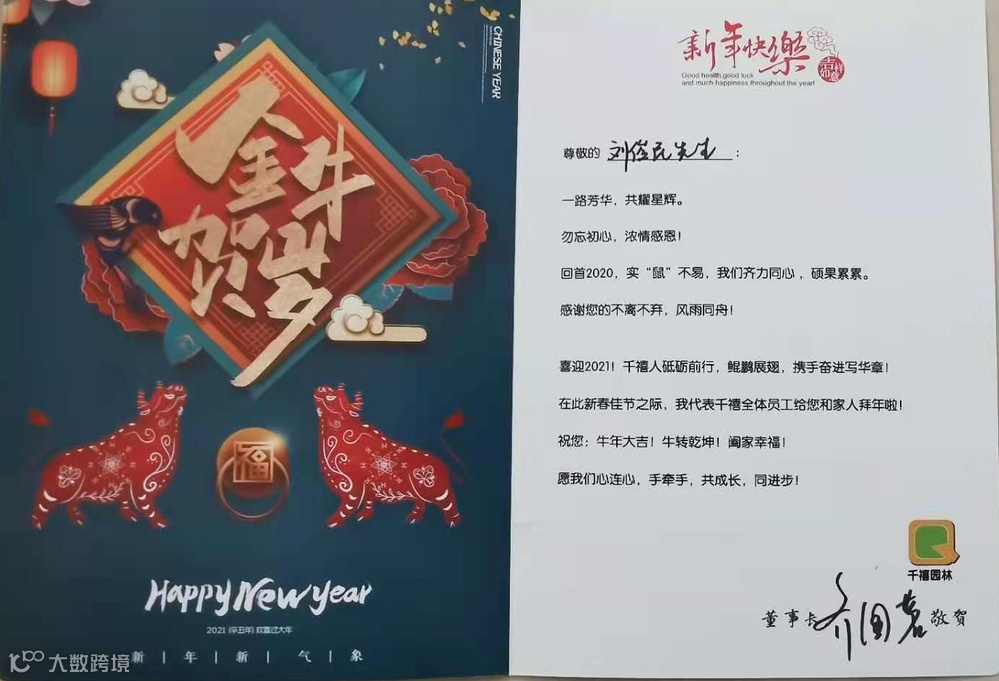 CHINESE YEAR
金牛
贺岁
福
Happy New year
2021 (辛丑年) 欢喜过大年
新 | 年 | 新 | 气 | 象
大数跨境
新年快樂
吉祥
如意
Good health,good luck
and much happiness throughout the year!
尊敬的 刘俊民先生 :
一路芳华，共耀星辉。
勿忘初心，浓情感恩！
回首2020，实“鼠”不易，我们齐力同心，硕果累累。
感谢您的不离不弃，风雨同舟！
喜迎2021！千禧人砥砺前行，鲲鹏展翅，携手奋进写华章！
在此新春佳节之际，我代表千禧全体员工给您和家人拜年啦！
祝您：牛年大吉！牛转乾坤！阖家幸福！
愿我们心连心，手牵手，共成长，同进步！
千禧园林
董事长 敬贺